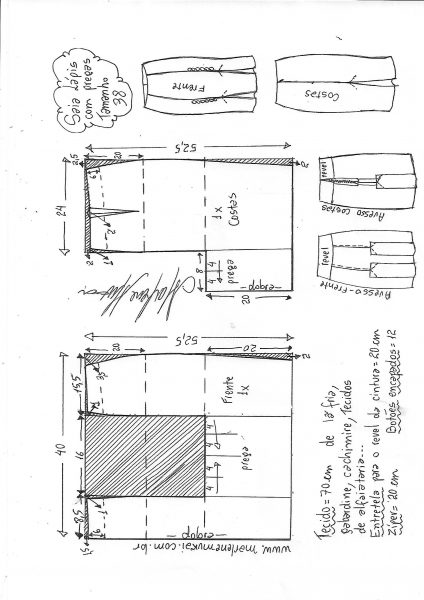 Saia Lápis
com pregas
Tamanho
38
Frente
Costas
52,5
20
2,5
6
24
2
2
1
1x
Costas
8
4 4
prega
dobra
20
2
revel
Avesso Costas
revel
Avesso-Frente
52,5
20
20
3,5
15,5
2
40
16
8,5
1
6
1,5
Frente
1x
4 4 4 4
prega
dobra
2
www.marlenemukai.com.br
Tecido = 70cm de lã fria,
gabardine, cachimire, tecidos
de alfaiataria...
Entretela para o revel da cintura = 20 cm
Ziper = 20 cm
Botões encapados = 12